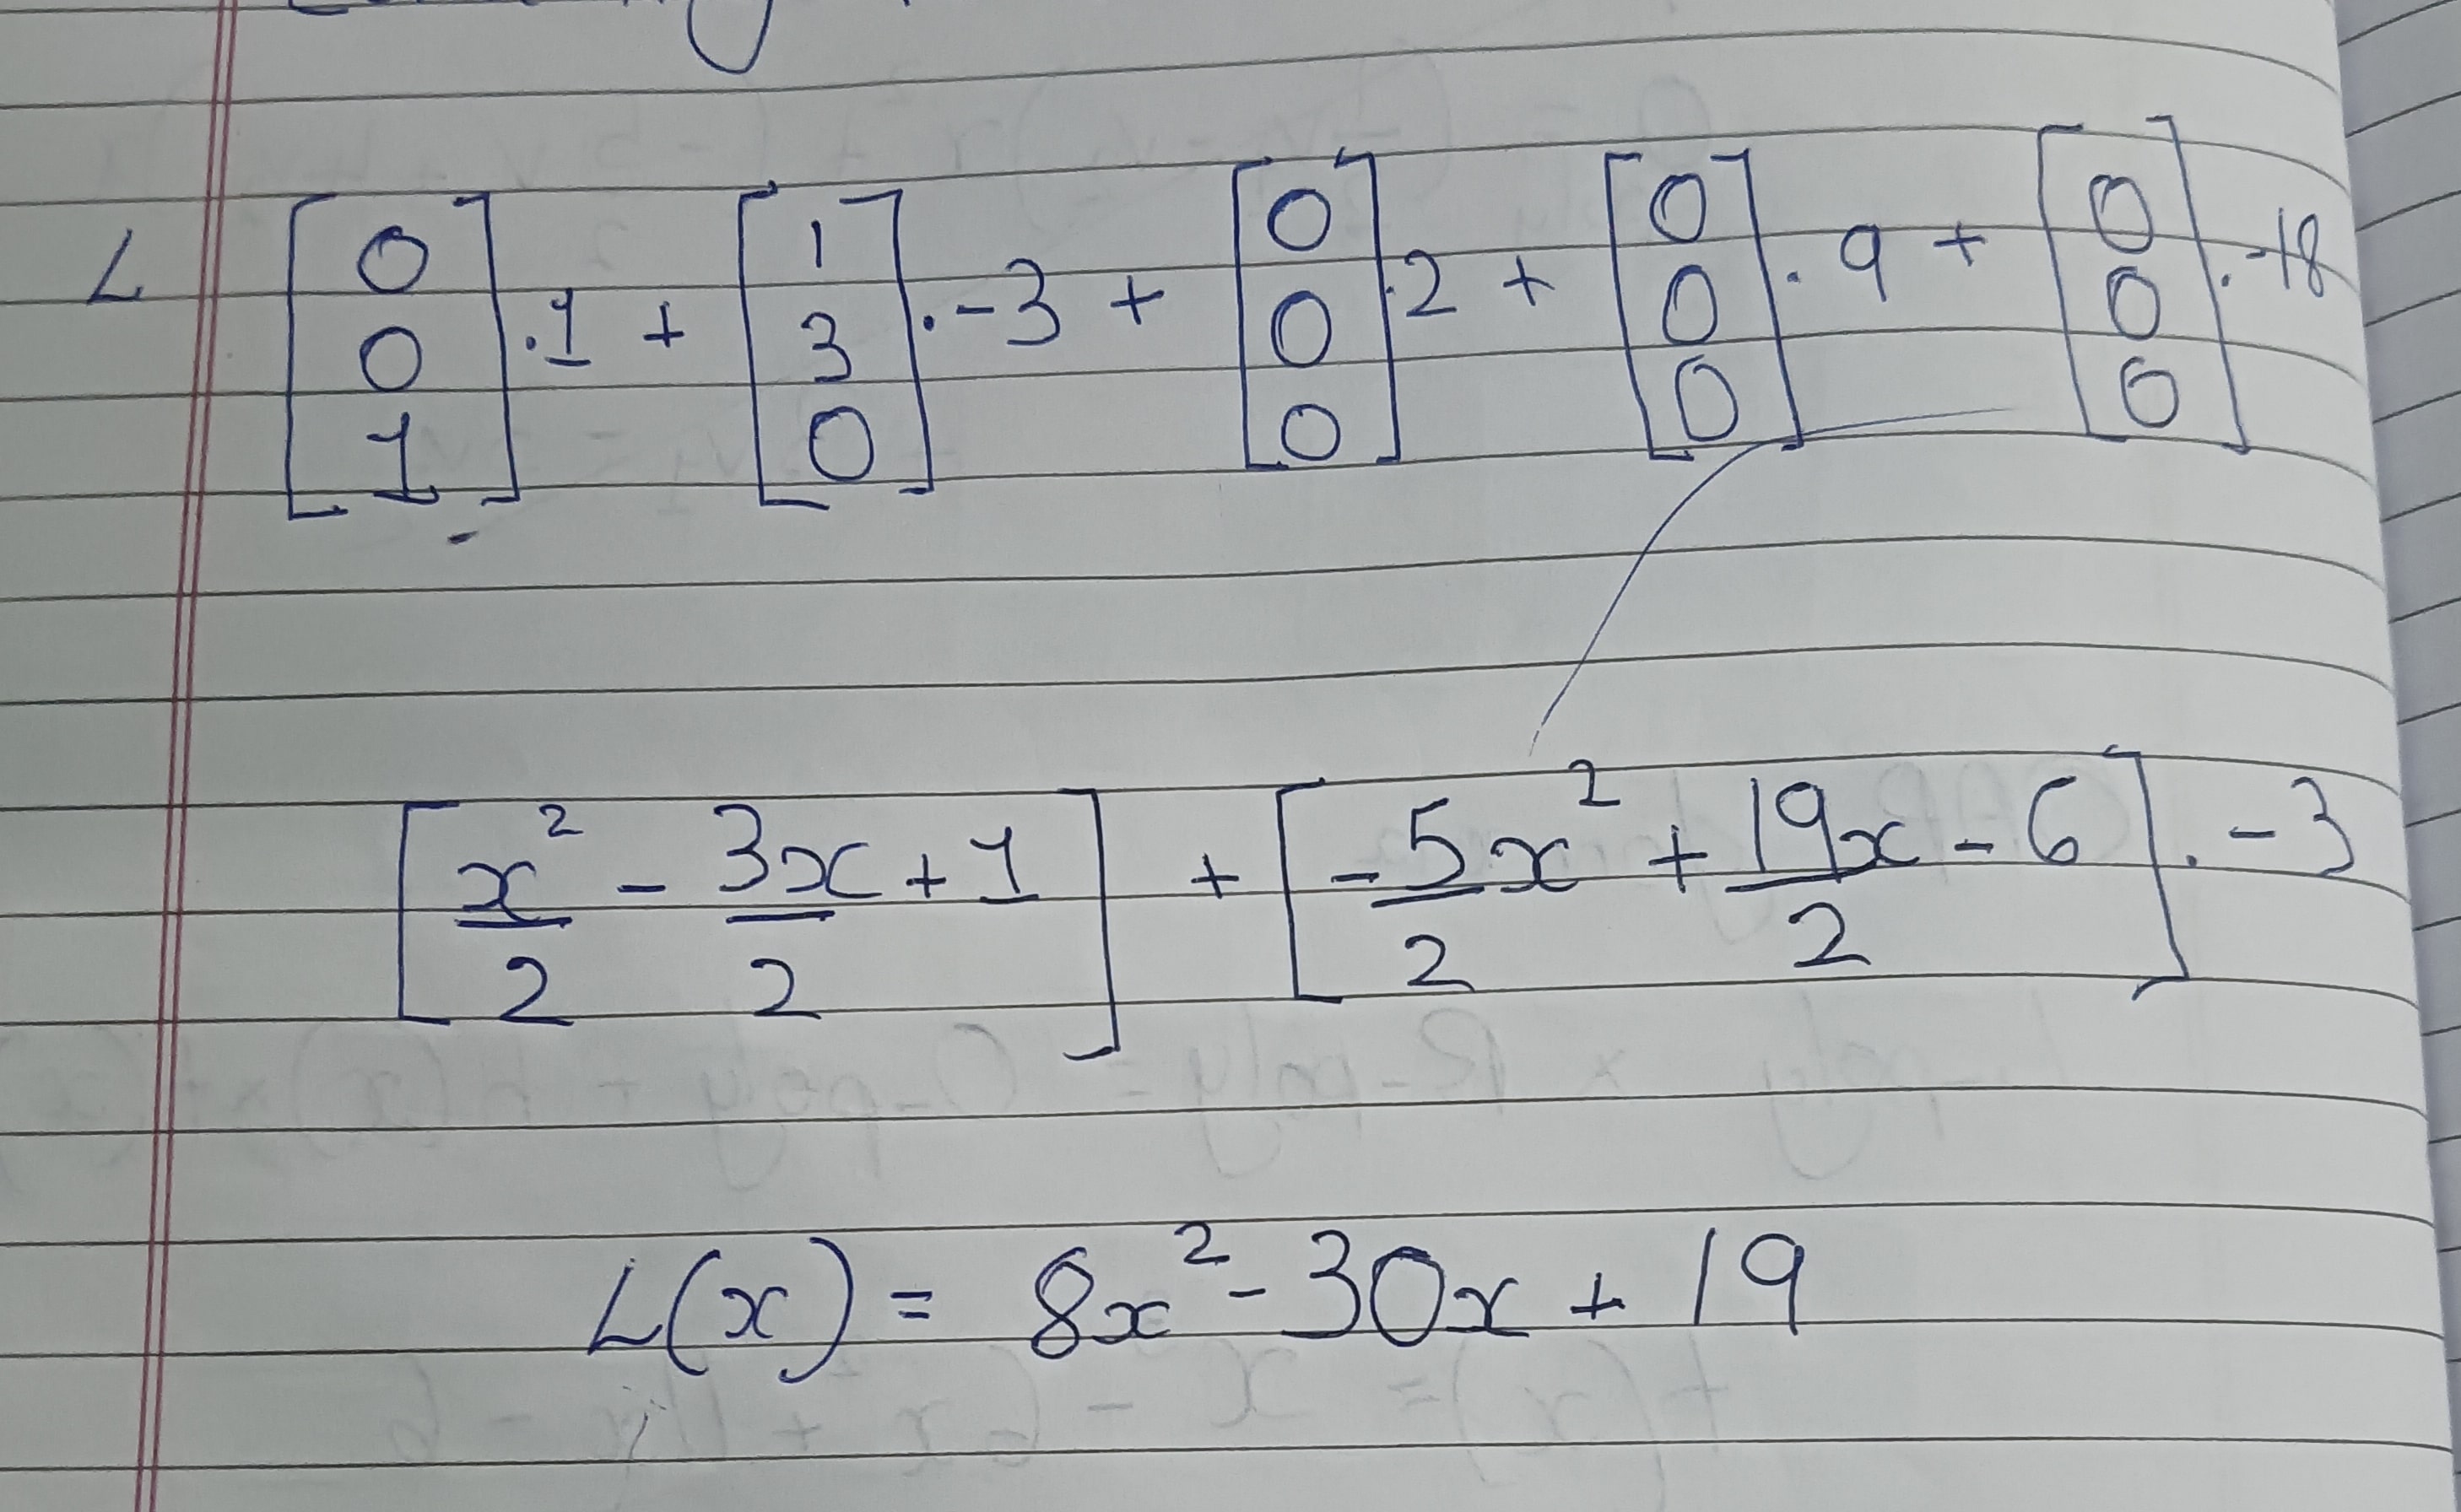 L [0 0 1] . 1 + [1 3 0] . -3 + [0 0 0] . 2 + [0 0 0] . 9 + [0 0 0] . -18
[x²/2 - 3x/2 + 1] + [-5/2 x² + 19x/2 - 6] . -3
L(x) = 8x² - 30x + 19